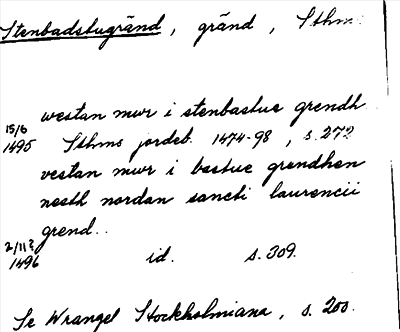 Stenbadstugränd, gränd, Sthm
westan mwr i stenbastue grendh
15/6
1495 Sthms jordeb. 1474-98, s. 272
vestan mwr i bastue grendhen
nesth nordan sancti laurencii
grend..
2/11?
1496 id. s. 309.
Se Wrangel Stockholmiana, s. 200.